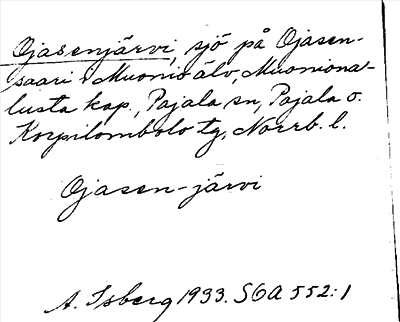 Ojasenjärvi, sjö på Ojasen-
saari i Muonio älv, Muoniona-
lusta kap., Pajala sn, Pajala o.
Korpilombolo tg, Norrb. l.
Ojasen-järvi
A. Isberg 1933. SOA 552:1